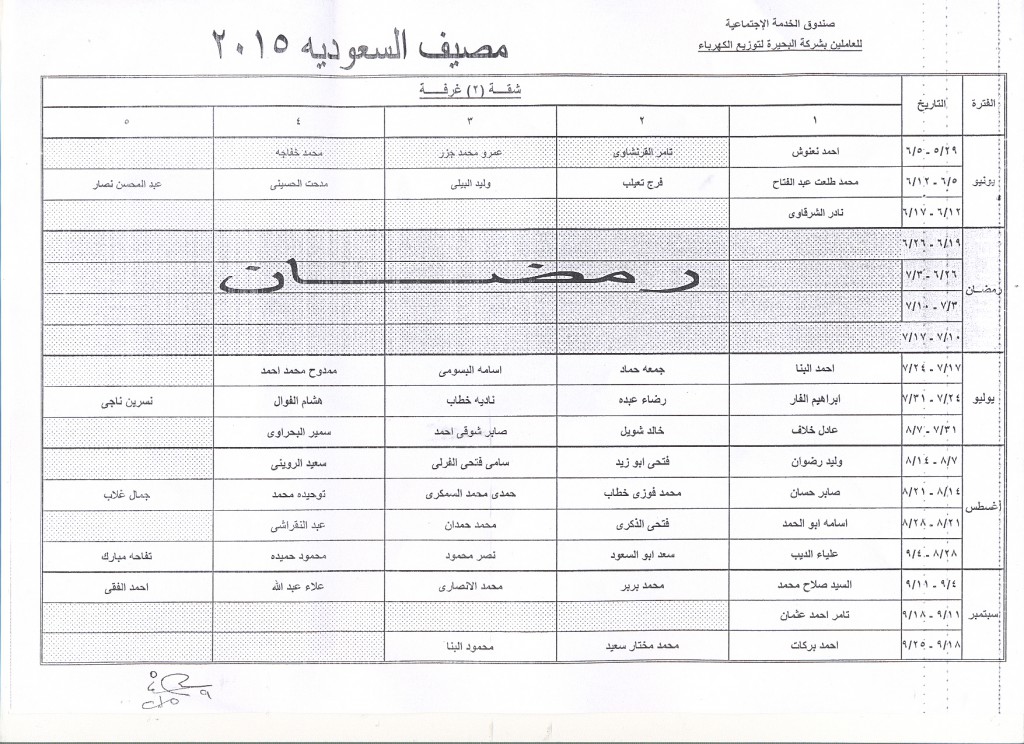 صندوق الخدمة الإجتماعية
للعاملين بشركة البحيرة لتوزيع الكهرباء
مصيف السعوديه ٢٠١٥
الفترة التاريخ شقـــة (٢) غرفــــة
١ ٢ ٣ ٤ ٥
يونيو
٥/٢٩ - ٦/٥ احمد نعنوش تامر القرنشاوى عمرو محمد جزر محمد خفاجه
٦/٥ - ٦/١٢ محمد طلعت عبد الفتاح فرج تعيلب وليد البيلى مدحت الحسينى عبد المحسن نصار
٦/١٢ - ٦/١٧ نادر الشرقاوى
رمضـــان
٦/١٩ - ٦/٢٦
٦/٢٦ - ٧/٣
٧/٣ - ٧/١٠
٧/١٠ - ٧/١٧
رمضـــــــــان
يوليو
٧/١٧ - ٧/٢٤ احمد البنا جمعه حماد اسامه البسومى ممدوح محمد احمد
٧/٢٤ - ٧/٣١ ابراهيم الفار رضاء عبده ناديه خطاب هشام الفوال نسرين ناجى
٧/٣١ - ٨/٧ عادل خلاف خالد شويل صابر شوقى احمد سمير البحراوى
أغسطس
٨/٧ - ٨/١٤ وليد رضوان فتحى ابو زيد سامى فتحى الفرلى سعيد الروينى
٨/١٤ - ٨/٢١ صابر حسان محمد فوزى خطاب حمدى محمد السمكرى توحيده محمد جمال غلاب
٨/٢١ - ٨/٢٨ اسامه ابو الحمد فتحى الذكرى محمد حمدان عبد النقراشى
٨/٢٨ - ٩/٤ علياء الديب سعد ابو السعود نصر محمود محمود حميده تفاحه مبارك
سبتمبر
٩/٤ - ٩/١١ السيد صلاح محمد محمد بربر محمد الانصارى علاء عبد الله احمد الفقى
٩/١١ - ٩/١٨ تامر احمد عثمان
٩/١٨ - ٩/٢٥ احمد بركات محمد مختار سعيد محمود البنا